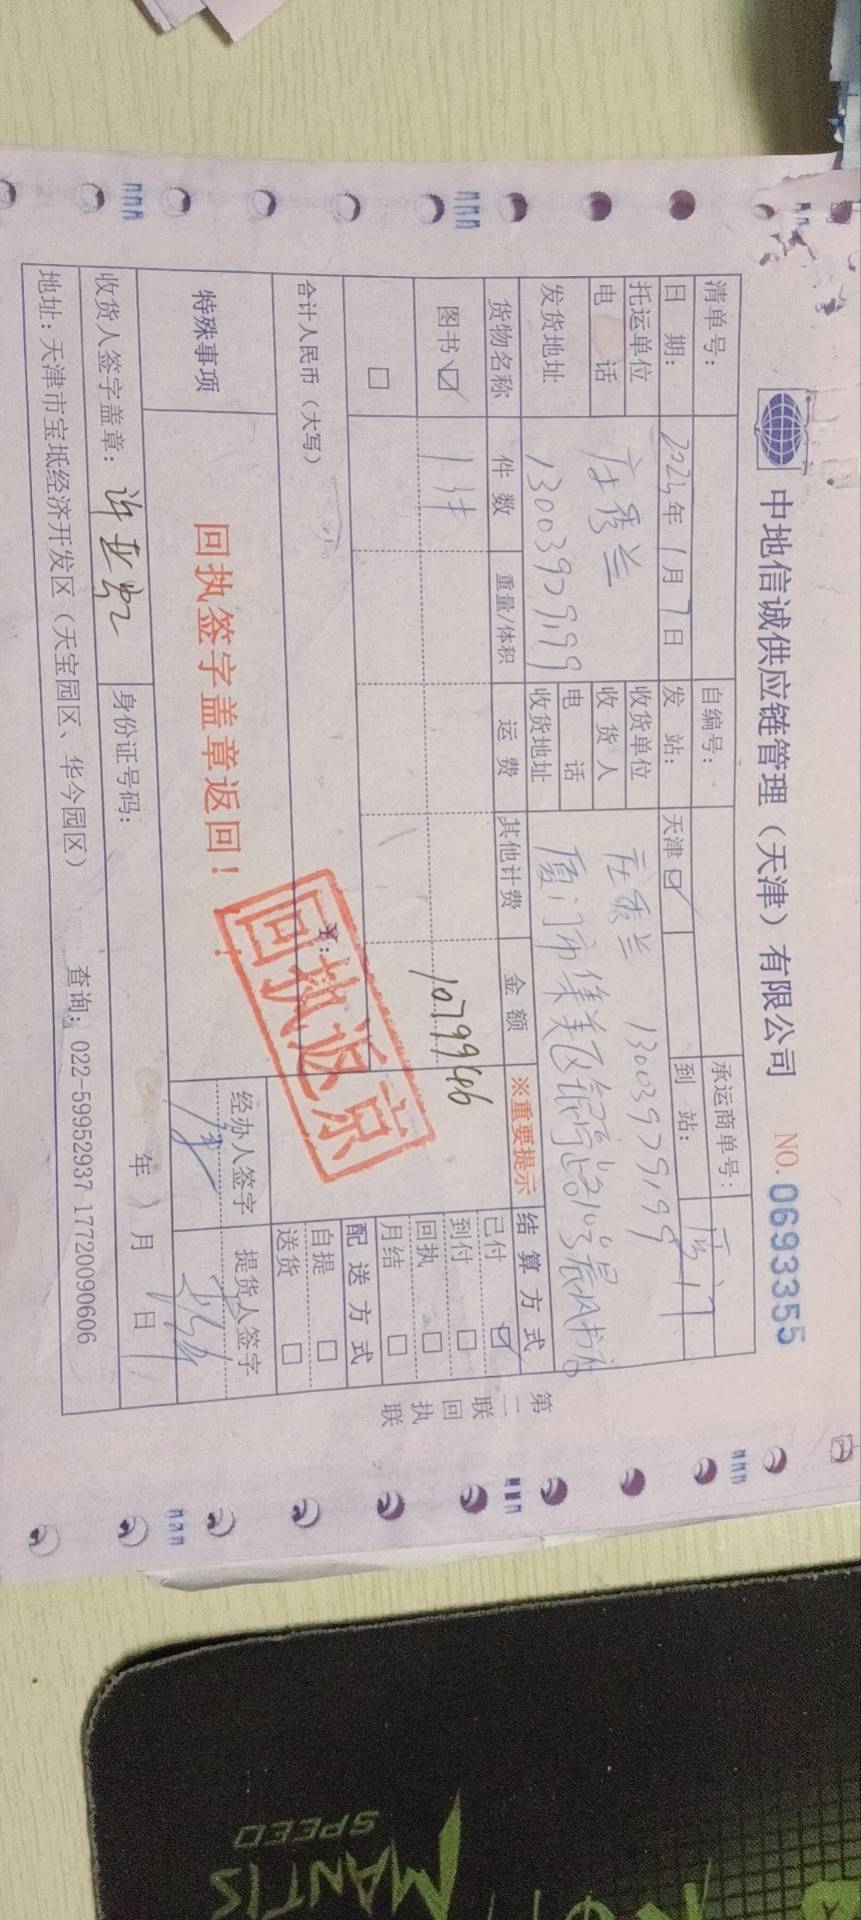 中地信诚供应链管理（天津）有限公司 NO. 0693355
清单号： 自编号： 承运商单号：
日 期： 年 1 月 7 日 发 站： 天津 ☑ 到 站： 厦门
托运单位 收货单位
庄秀兰 收 货 人 庄秀兰 13003979199
电 话 13003979199 电 话
发货地址 收货地址 厦门市集美区
货物名称 件 数 重量/体积 运 费 其他计费 金 额 ※重要提示 结 算 方 式
图书 ☑ 1件 10799946 已付 ☑
到付 □
□ 回执 □
月结 □
合计人民币（大写） ￥： 配 送 方 式
自提 □
送货 □
特殊事项 回执签字盖章返回！ 经办人签字 提货人签字
回执返京
收货人签字盖章： 身份证号码： 年 月 日
地址：天津市宝坻经济开发区（天宝园区、华今园区） 查询：022-59952937 17720090606
第二联 回执联
MANTIS
SPEED